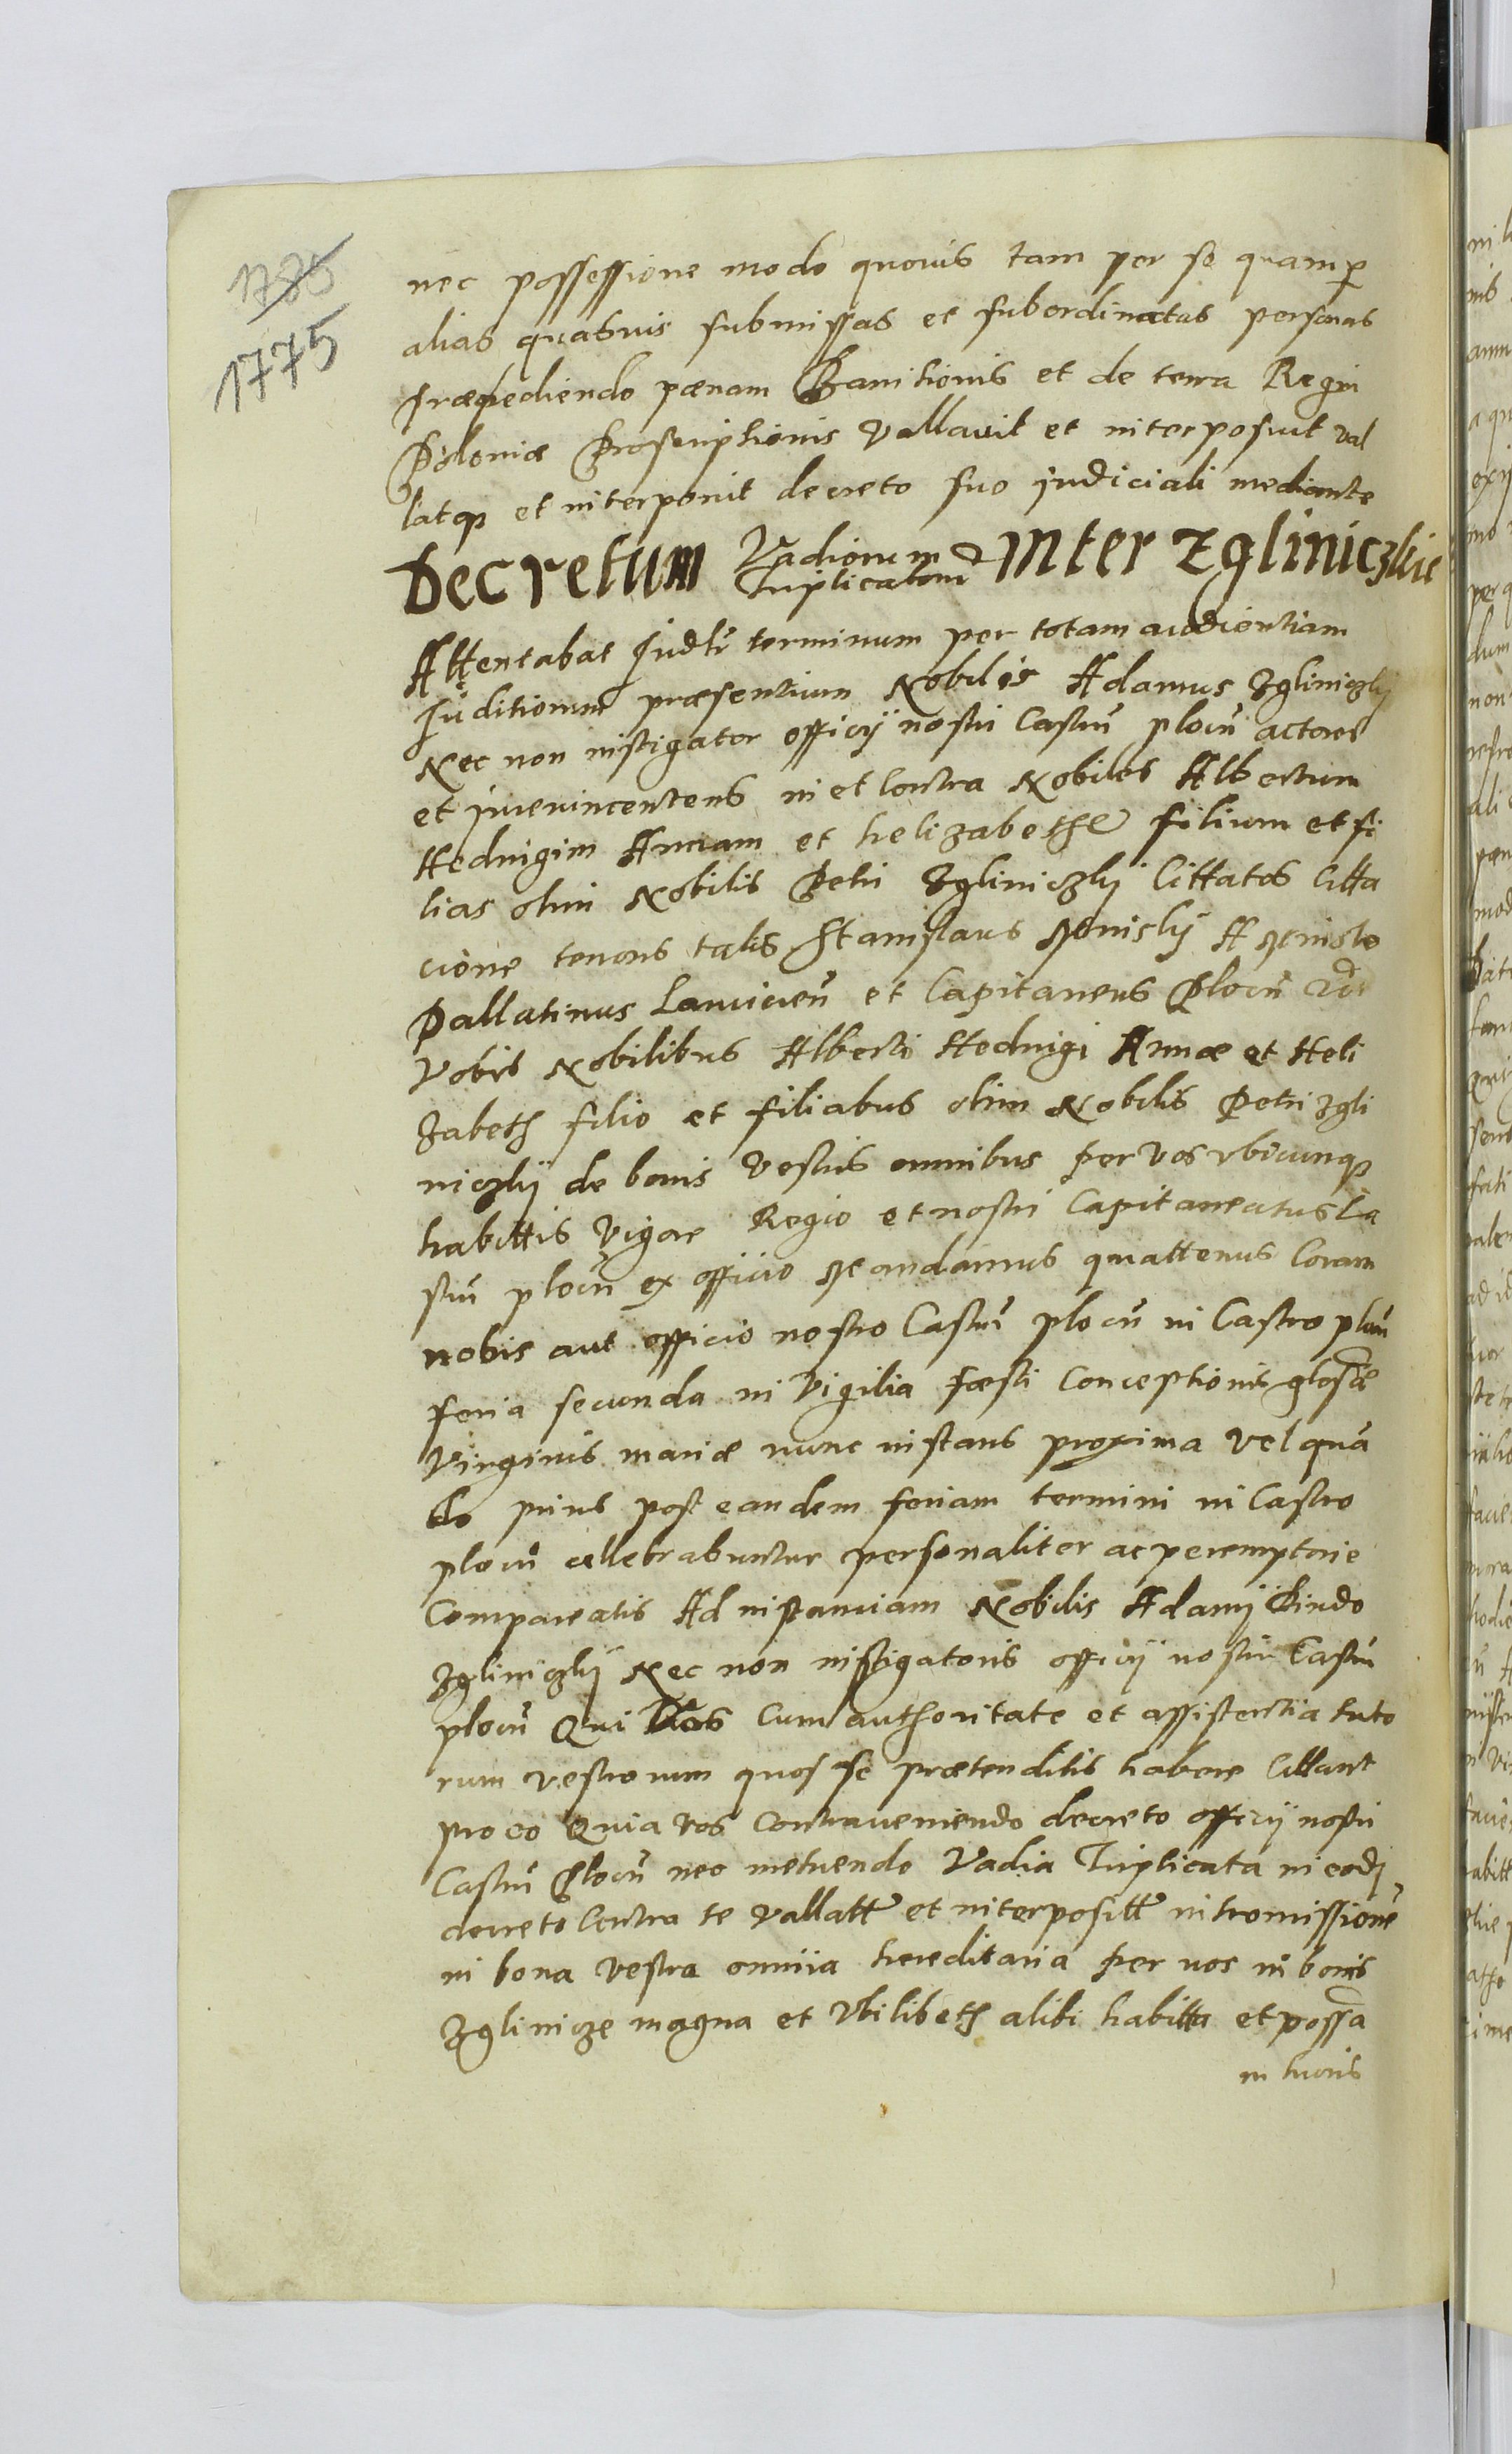 1785
1775
nec possessione modo quovis tam per se quam per
alias quasvis submissas et subordinatas personas
præpediendo pænam Banitionis et de terra Regni
Poloniæ Proscriptionis Vallavit et interposuit val
latque et interponit decreto suo judiciali mediante
Decretum Vadiorum Triplicatorum Inter Zgliniczkie
Attentabat Judtr terminum per totam audientiam
Juditiorum præsentium Nobilis Adamus Zgliniczky
Nec non instigator officij nostri Castrn plocn actores
et in et Contra Nobiles Albertum
Hedvigim Annam et helizabethe filium et fi
lias olim Nobilis Petri Zgliniczky Cittatos Citta
cione tenoris talis Stanislaus Minsky A Minsko
Pallatinus Lancicien et Capitaneus Plocn
Vobis Nobilibus Alberti Hedvigi Annæ et Heli
zabeth filio et filiabus olim Nobilis Petri Zgli
niczky de bonis Vestris omnibus per vos ubicunque
habittis Vigore Regio et nostri Capitaneatus Ca
strn plocn ex officio Mandamus quattenus Coram
nobis aut officio nostro Castrn plocn in Castro plocn
feria secunda in Vigilia fæsti Conceptionis glosæ
Virginis mariæ nunc instans proxima Vel quan
do prius post eandem feriam termini in Castro
plocn cellebrabuntur personaliter ac peremptorie
Compareatis Ad instanciam Nobilis Adamj
Zgliniczky Nec non instigatoris officij nostri Castrn
plocn Qui Vos Cum authoritate et assistentia tuto
rum vestrorum quos se prætenditis habere Cittant
pro eo Quia vos Contraveniendo decreto officij nostri
Castrn Plocn nec metuendo Vadia Triplicata in eodj
decreto Contra te Vallatt et interposittt intromissione
in bona vestra omnia hereditaria per vos in bonis
Zglinicze magna et Ubilibeth alibi habitta et possa
in turis